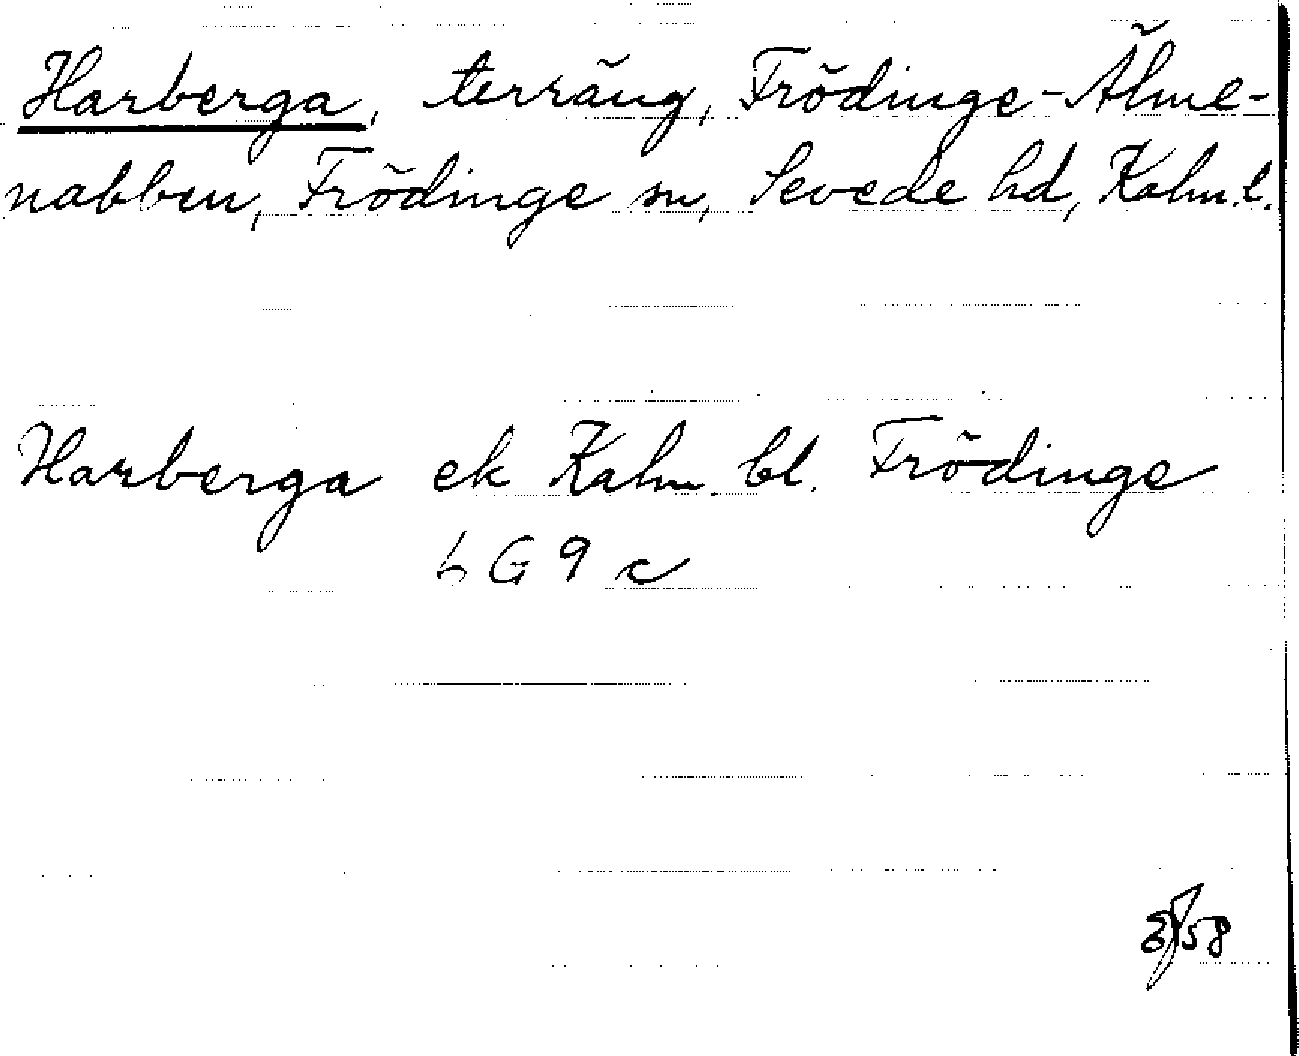 Harberga, terräng, Frödinge-Älme-
nabben, Frödinge sn, Sevede hd, Kalm. l.
Harberga ek Kalm. bl. Frödinge
6 G 9 c
58